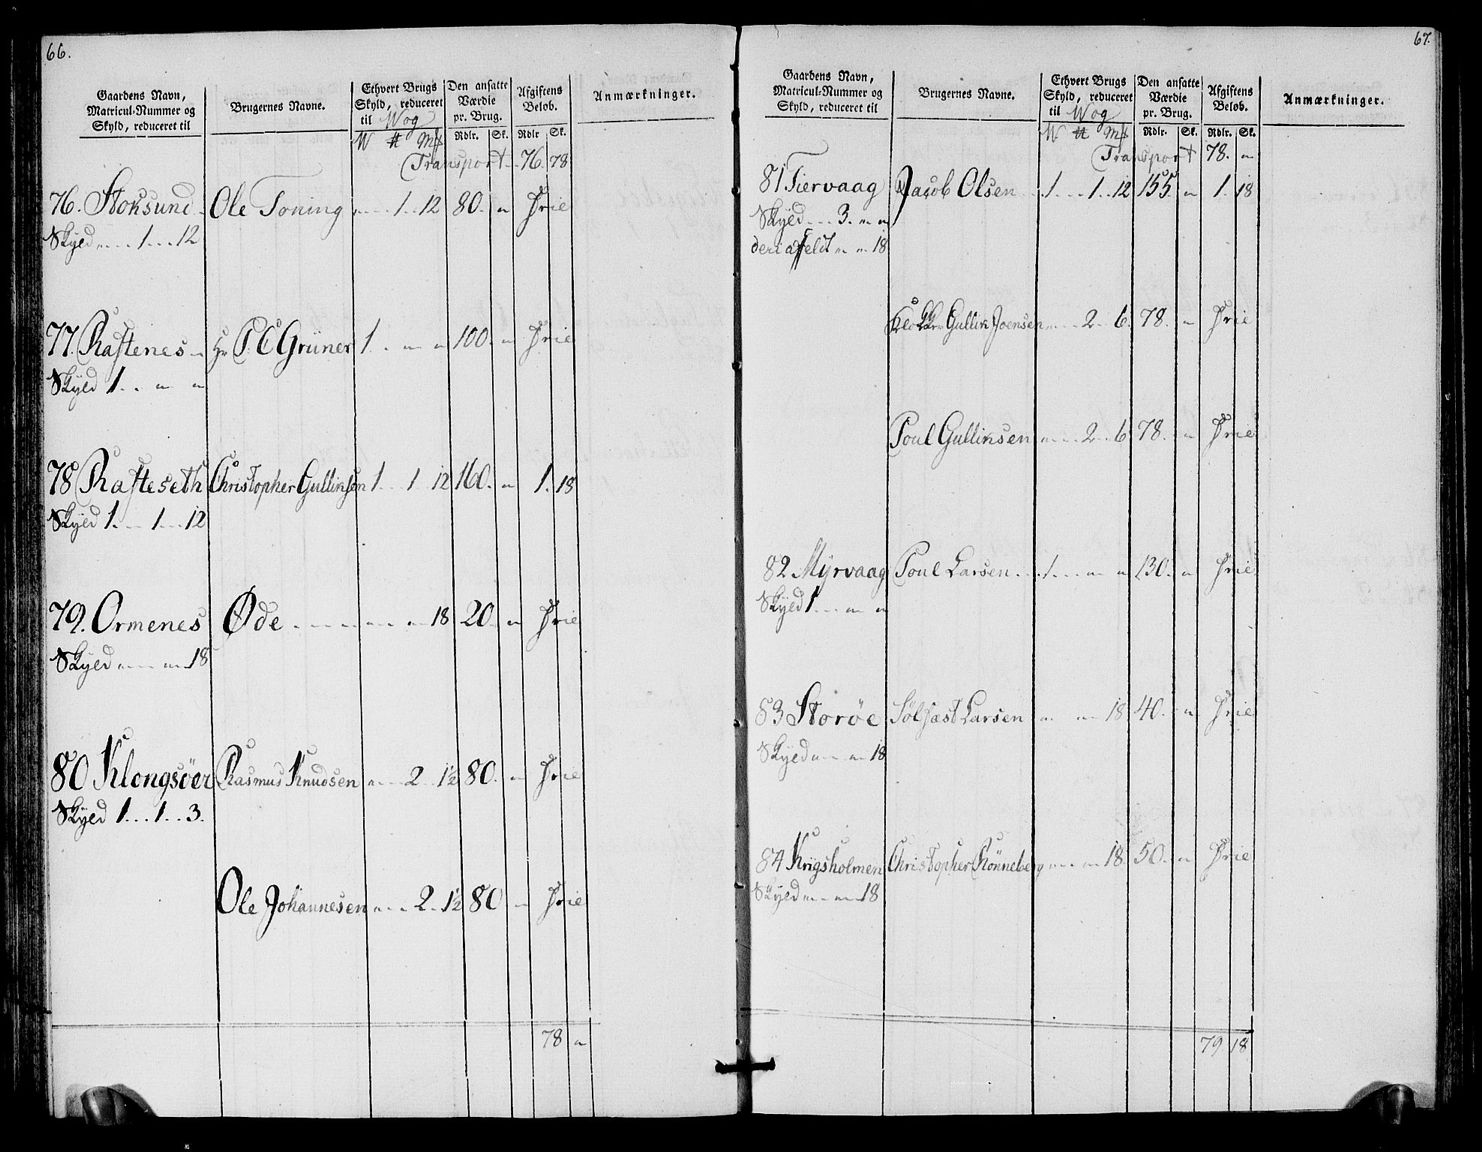 66.
Gaardens Navn, Matricul-Nummer og Skyld, reduceret til
Brugernes Navne.
Ethvert Brugs Skyld, reduceret til Wog
Den ansatte Værdie pr. Brug.
Afgiftens Beløb.
Anmærkninger.
W # Mk Rdlr. Sk. Rdlr Sk.
Transport 76 78
76. Stoksund Ole Toning 1 12 80 " Frie
Skyld 1 12
77. Raftenes Hr P. C. Grüner 1 " " 100 " Frie
Skyld 1 " "
78 Rafteseth Christopher Gullinsen 1 1 12 160 " 1 18
Skyld 1 1 12
79. Ormenes Øde " " 18 20 " Frie
Skyld " " 18
80 Klongsöer Rasmus Knudsen " 2 1½ 80 " Frie
Skyld 1 1 3.
Ole Johannesen " 2 1½ 80 " Frie
78 "
67.
Gaardens Navn, Matricul-Nummer og Skyld, reduceret til
Brugernes Navne.
Ethvert Brugs Skyld, reduceret til Wog
Den ansatte Værdie pr. Brug.
Afgiftens Beløb.
Anmærkninger.
W # Mk Rdlr. Sk. Rdlr. Sk.
Transport 78. "
81 Tiervaag Jacob Olsen 1 1 12 155 " 1 18
Skyld 3. " "
" " 18
Gullik Joensen " 2 6 78. " Frie
Poul Gullinsen " 2 6 78. " Frie
82 Myrvaag Poul Larsen 1 " " 130 " Frie
Skyld 1 " "
83 Storøe Sølfast Larsen " " 18 40 " Frie
Skyld " " 18
84 Krigsholmen Christopher Rönneberg " " 18 50 " Frie
Skyld " " 18
79 18